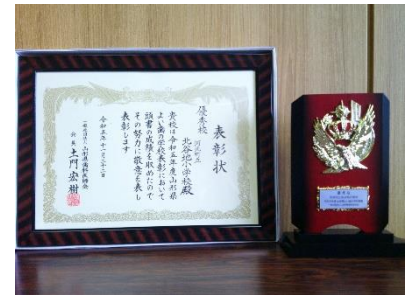 表彰状
優秀校
河北町立
北谷地小学校殿
貴校は令和五年度山形県
よい歯の学校表彰において
頭書の成績を収めたので
その努力に敬意を表し
表彰します
令和五年十一月二十二日
一般社団法人山形県歯科医師会
会長 土門宏樹
優秀校